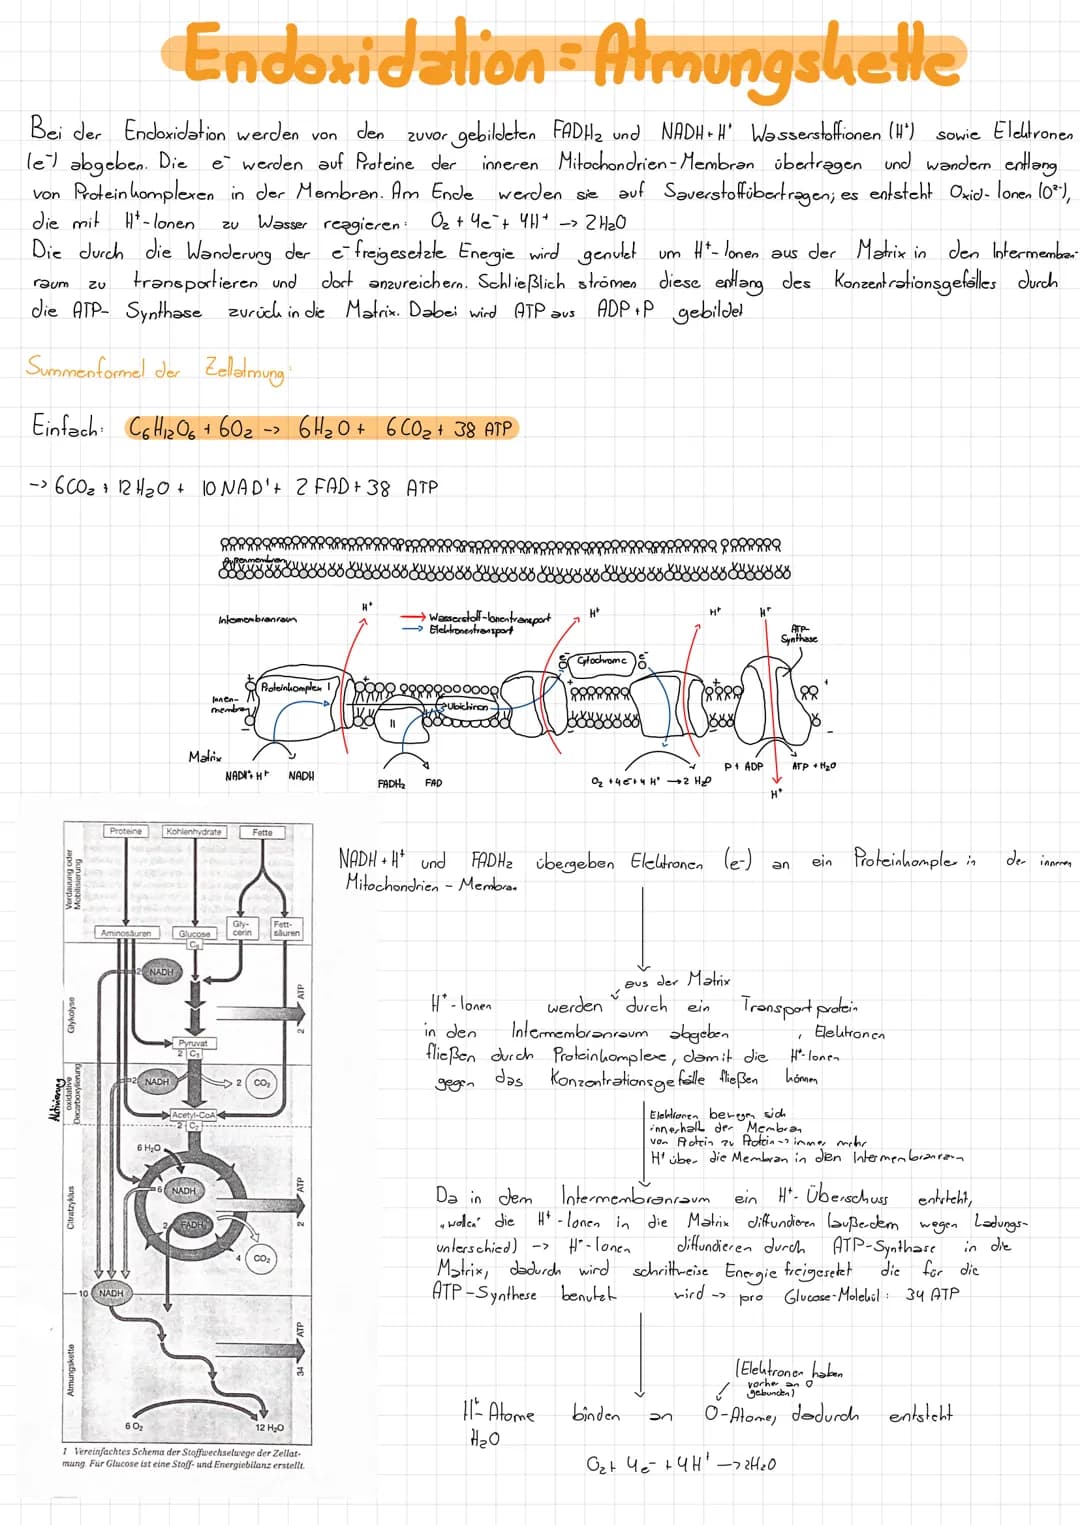 Endoxidation = Atmungskette
Bei der Endoxidation werden von den zuvor gebildeten FADH₂ und NADH+H⁺ Wasserstoffionen (H⁺) sowie Elektronen
(e⁻) abgeben. Die e⁻ werden auf Proteine der inneren Mitochondrien-Membran übertragen und wandern entlang
von Proteinkomplexen in der Membran. Am Ende werden sie auf Sauerstoff übertragen; es entsteht Oxid-Ionen (O²⁻),
die mit H⁺-Ionen zu Wasser reagieren: O₂ + 4e⁻ + 4H⁺ -> 2H₂O
Die durch die Wanderung der e⁻ freigesetzte Energie wird genutzt um H⁺-Ionen aus der Matrix in den Intermembran-
raum zu transportieren und dort anzureichern. Schließlich strömen diese entlang des Konzentrationsgefälles durch
die ATP-Synthase zurück in die Matrix. Dabei wird ATP aus ADP+P gebildet
Summenformel der Zellatmung:
Einfach: C₆H₁₂O₆ + 6O₂ -> 6H₂O + 6CO₂ + 38 ATP
-> 6CO₂ + 12H₂O + 10NAD⁺ + 2FAD + 38 ATP
Außenmembran
Intermembranraum
H⁺
Wasserstoff-Ionentransport
Elektronentransport
H⁺
H⁺
H⁺
ATP-
Synthase
Cytochrom c
e⁻
e⁻
Proteinkomplex I
Innen-
membran
II
Ubichinon
Matrix
NADH+H⁺
NADH
FADH₂
FAD
O₂ + 4e⁻ + 4H⁺ -> 2 H₂O
P + ADP
ATP + H₂O
H⁺
Proteine
Kohlenhydrate
Fette
Verdauung oder
Mobilisierung
Aminosäuren
Glucose
C₆
Gly-
cerin
Fett-
säuren
Glykolyse
2 NADH
2 ATP
Pyruvat
2 C₃
Aktivierung
oxidative
Decarboxylierung
2 NADH
2 CO₂
Acetyl-CoA
2 C₂
Citratzyklus
6 H₂O
6 NADH
2 FADH₂
2 ATP
4 CO₂
10 NADH
Atmungskette
34 ATP
6 O₂
12 H₂O
1 Vereinfachtes Schema der Stoffwechselwege der Zellat-
mung. Für Glucose ist eine Stoff- und Energiebilanz erstellt.
NADH + H⁺ und FADH₂ übergeben Elektronen (e-) an ein Proteinkomplex in der inneren
Mitochondrien - Membran
aus der Matrix
H⁺-Ionen werden durch ein Transportprotein
in den Intermembranraum abgeben, Elektronen
fließen durch Proteinkomplexe, damit die H⁺-Ionen
gegen das Konzentrationsgefälle fließen können
Elektronen bewegen sich
innerhalb der Membran
von Protein zu Protein -> immer mehr
H⁺ über die Membran in den Intermembranraum
Da in dem Intermembranraum ein H⁺-Überschuss entsteht,
"wollen" die H⁺-Ionen in die Matrix diffundieren (außerdem wegen Ladungs-
unterschied) -> H⁺-Ionen diffundieren durch ATP-Synthase in die
Matrix, dadurch wird schrittweise Energie freigesetzt die für die
ATP-Synthese benutzt wird -> pro Glucose-Molekül: 34 ATP
(Elektronen haben
vorher an O
gebunden)
H⁺-Atome binden an O-Atome, dadurch entsteht
H₂O
O₂ + 4e⁻ + 4H⁺ -> 2H₂O